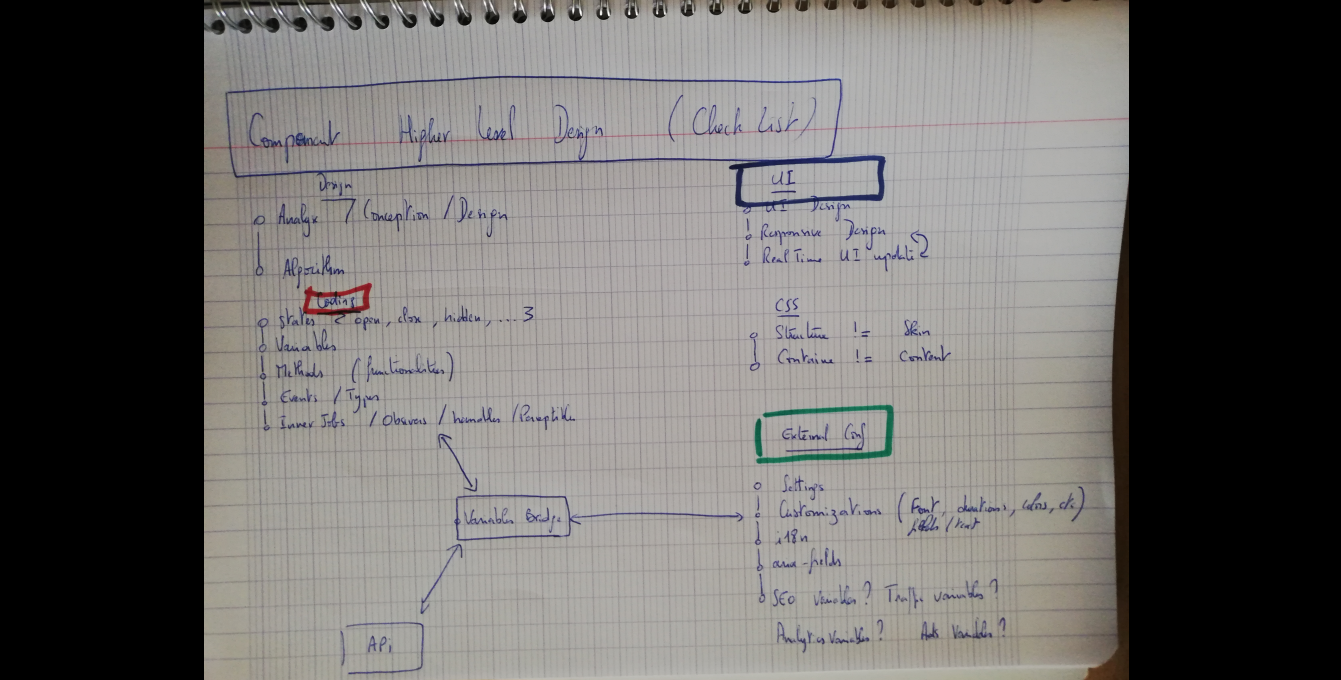 Component Higher Level Design (Check List)
Design
Analyse / Conception / Design
Algorithm
Coding
States { open, close, hidden, ... }
Variables
Methods (functionalities)
Events / Types
Inner Jobs / Observers / handles /
Variables Bridge
APi
UI
UI Design
Responsive Design
Real Time UI update
CSS
Structure != Skin
Container != Content
External Conf
Settings
Customizations (Font, durations, colors, etc)
labels / text
i18n
aux-fields
SEO variables? Traffic variables?
Analytics variables? Ads variables?